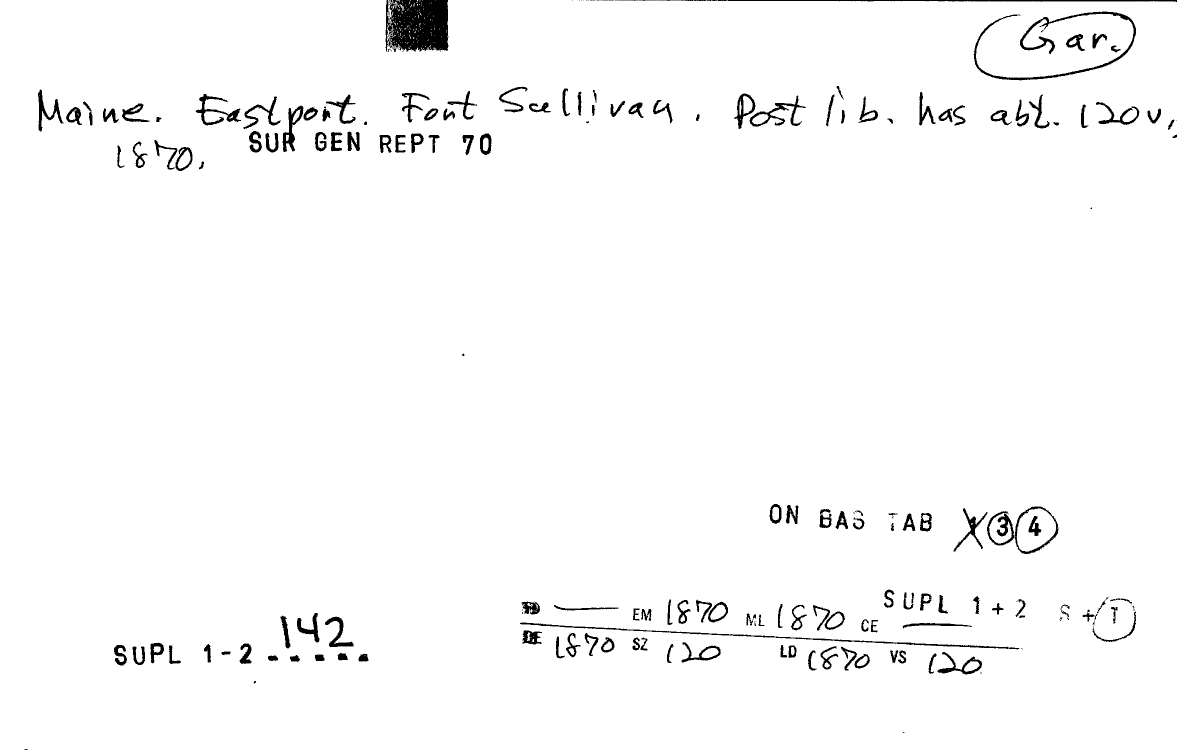 Gar.
Maine. Eastport. Fort Sullivan. Post lib. has abt. 120v,
1870. SUR GEN REPT 70
ON BAS TAB 3 4
EM 1870 ML 1870 CE SUPL 1+2 S+T
SUPL 1-2 142
DE 1870 SZ 120 LD 1870 VS 120